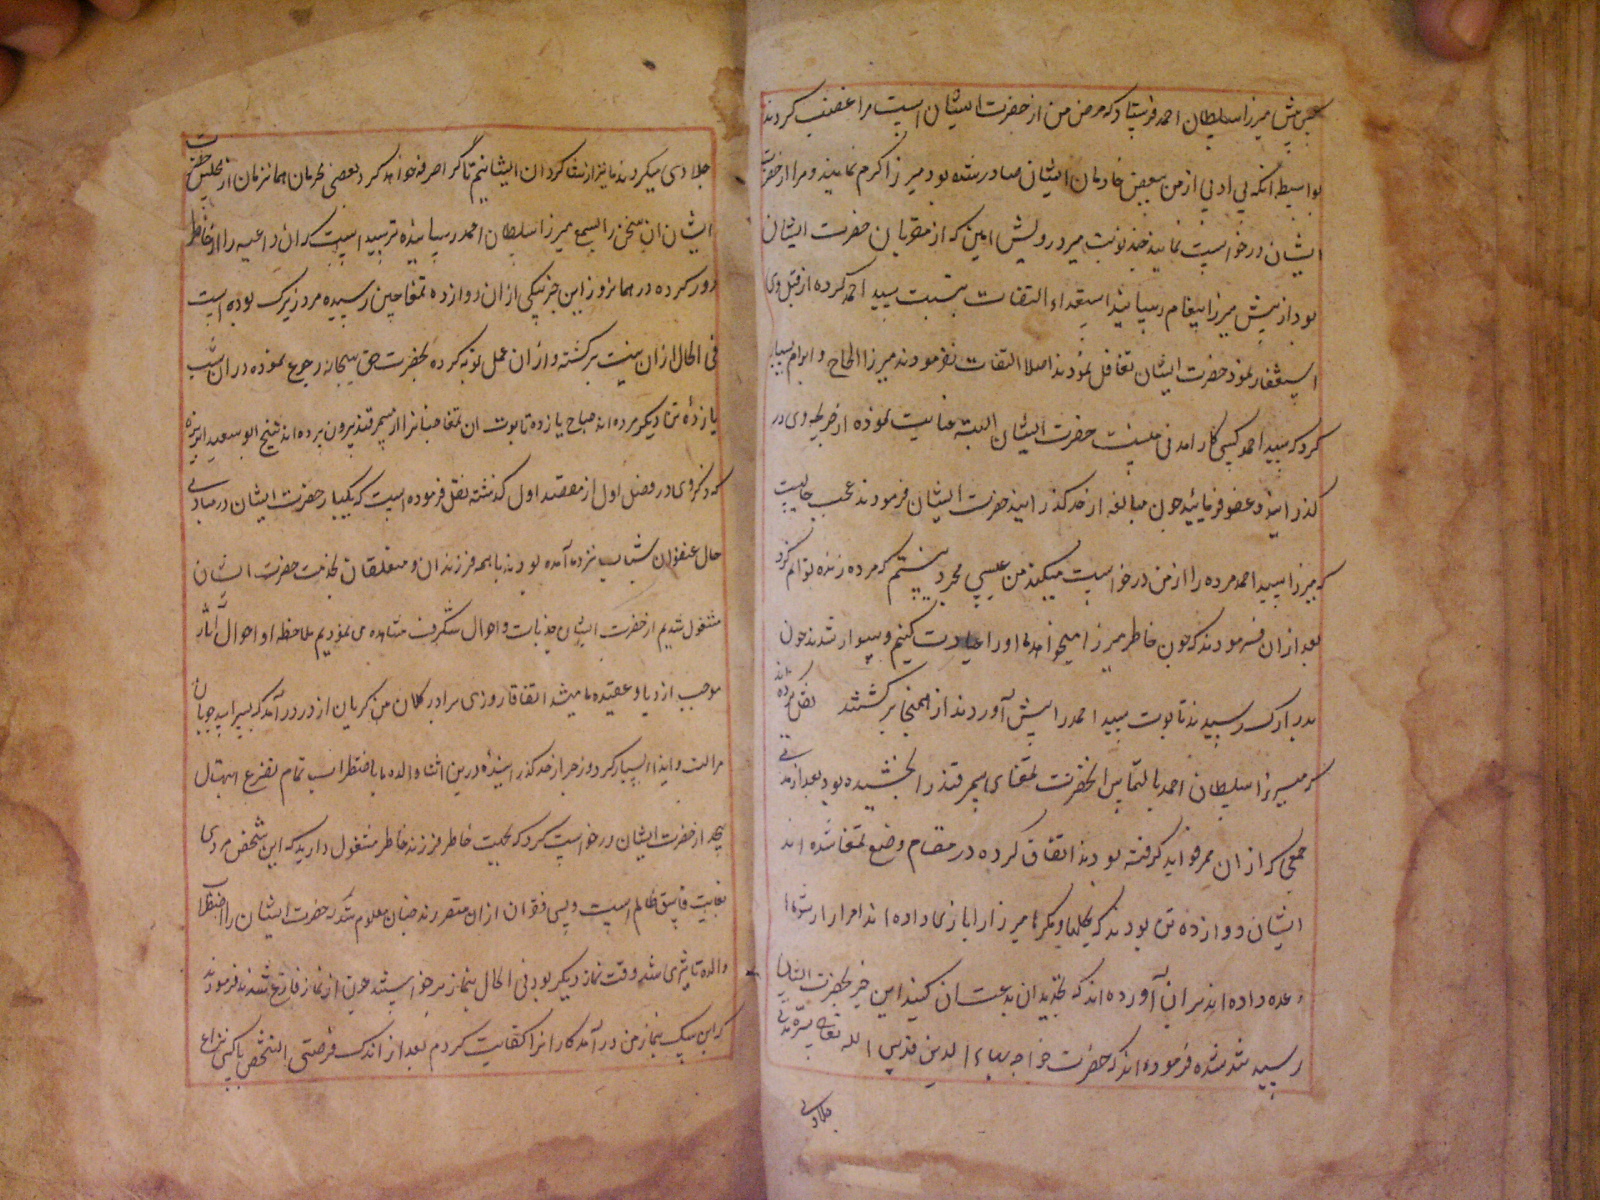 پیش میرزا سلطان احمد فرستاد که مرض من از حضرت ایشان است مرا غضب کردند
بواسطه آنکه بی ادبی از من ببعض خادمان ایشان صادر شده بود میرزا کرم نمایند و مرا از حضرت
ایشان درخواست نمایند چند نوبت میر درویش امین که از مقربان حضرت ایشان
بود از پیش میرزا پیغام رسانید استدعاء التفات بنسبت سید احمد کرده از قبل وی
استغفار نمود حضرت ایشان تغافل نمودند اصلا التفات نفرمودند میرزا الحاح و ابرام بسیار
کرد که سید احمد کسی کار آمدنی است حضرت ایشان البته عنایت نموده از جریمه وی در
گذرانند و عفو فرمایند چون مبالغه از حد گذرانید حضرت ایشان فرمودند عجب حالیست
که میرزا سید احمد مرده را از من درخواست میکند من عیسی مجرد نیستم که مرده زنده توانم کرد
بعد از آن فرمودند که چون خاطر میرزا میخواهد او را عیادت کنیم و سوار شدند چون
بدر ارک رسیدند تابوت سید احمد را پیش آوردند از همانجا برگشتند نقل کرده اند
که میرزا سلطان احمد بالتماس آنحضرت تمغای سمرقند را بخشیده بود بعد از مدتی
جمعی که از آن ممر فواید گرفته بودند اتفاق کرده در مقام وضع تمغا شده اند
ایشان دوازده تن بودند که میرزا را بازی داده اند امرا را رشوتها
وعده داده اند بر آن آورده اند که تجدید آن بدعت کنند این خبر بحضرت ایشان
رسید شده فرموده اند که حضرت خواجه بهاء الدین قدس الله تعالی سره مدتی
جلادی
جلادی میکردند ما نیز از شاگردان ایشانیم تا کرا صرفه خواهد کرد بعضی محرمان همان زمان از مجلس حضرت
ایشان این سخن را بسمع میرزا سلطان احمد رسانیده ترسیده است که آن داعیه را از خاطر
دور کرده در همان روز این خبر بیکی از آن دوازده تمغاچی رسیده مرد زیرک بوده است
فی الحال از آن نیت برگشته و از آن عمل توبه کرده بحضرت حق سبحانه رجوع نموده در آن شب
یازده تن دیگر مرده اند صباح یازده تابوت آن تمغاچیانرا از سمرقند بیرون برده اند شیخ ابو سعید
که ذکر وی در فصل اول از مقصد اول گذشته نقل فرموده است که یکبار حضرت ایشان در مبادی
حال عنفوان شباب نزد ما آمده بودند با همه فرزندان و متعلقان بخدمت حضرت ایشان
مشغول شدیم از حضرت ایشان جذبات و احوال شگرف مشاهده می نمودیم ملاحظه او احوال آثار
موجب ازدیاد عقیده ما میشد اتفاقا روزی برادر کلان من گریان از در درآمد که
مرا لت و ایذا بسیار کرد و زجر از حد گذرانید درین اثنا والده ما باضطراب تمام تضرع ابتهال
بیحد از حضرت ایشان درخواست کرد که بجهت خاطر فرزند خاطر مشغول دارید که این شخص مردی
بغایت فاسق ظالم است و بسی فقیران از آن متضررند چنان معلوم شد که حضرت ایشان را اضطراب
والده تاثیری شد وقت نماز دیگر بود فی الحال بنماز برخواستند چون از نماز فارغ شدند فرمودند
که این سگ بنماز من درآمد کار او را کفایت کردم بعد از اندک فرصتی آن شخص با کسی نزاع